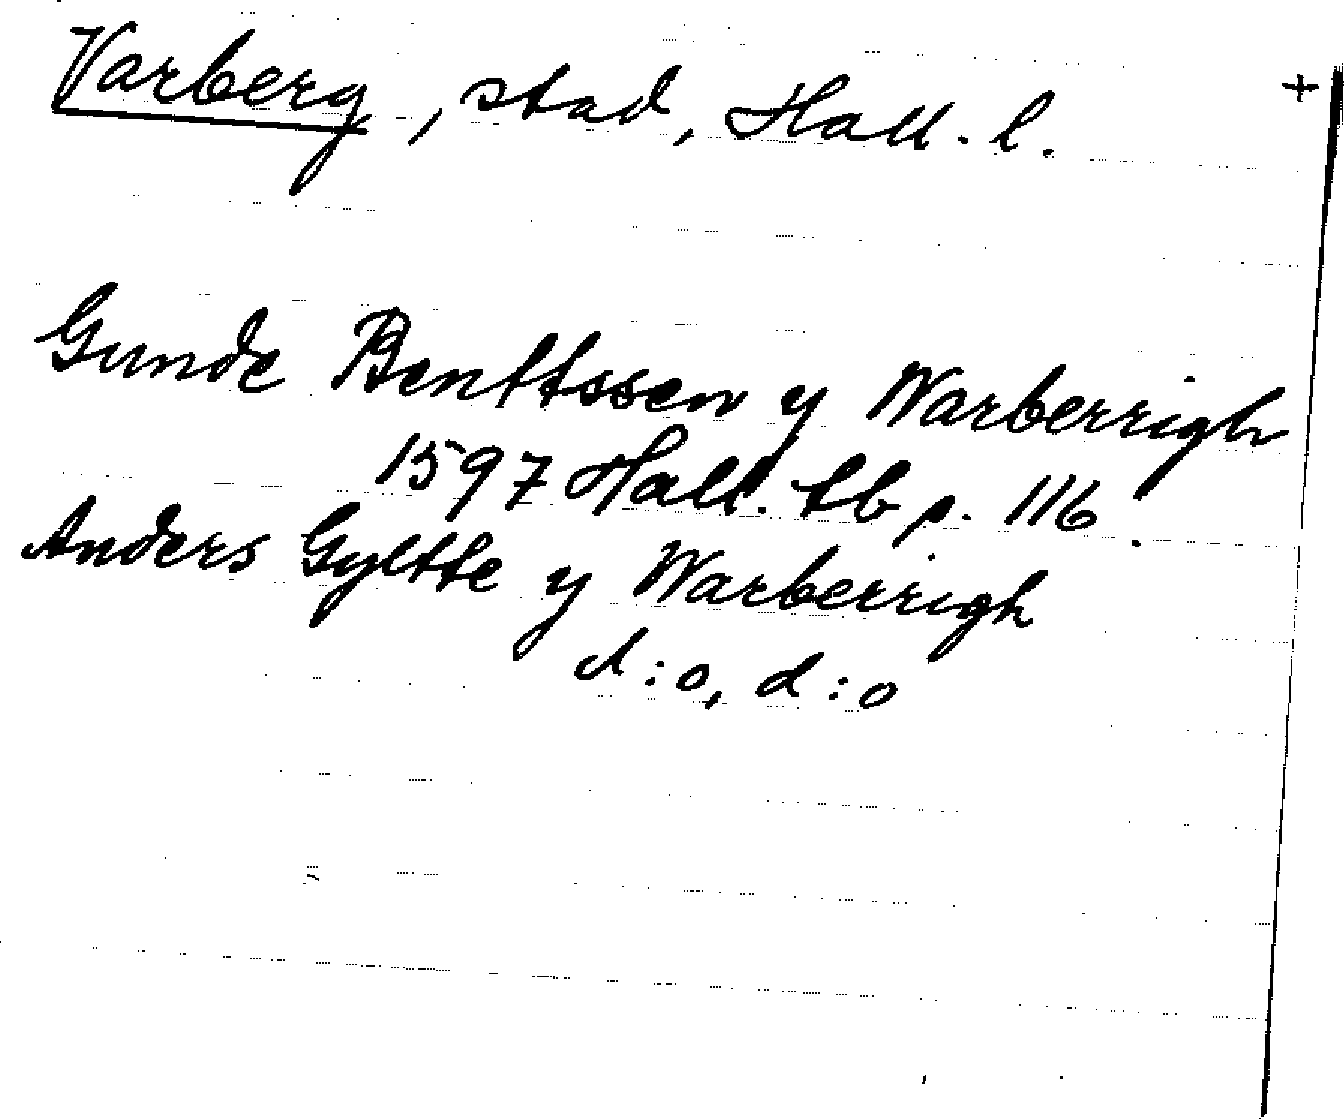 Varberg, stad, Hall. l. +
Gunde Benttssen y Warberrigh
1597 Hall. tb p. 116.
Anders Gyltte y Warberrigh
d:o, d:o